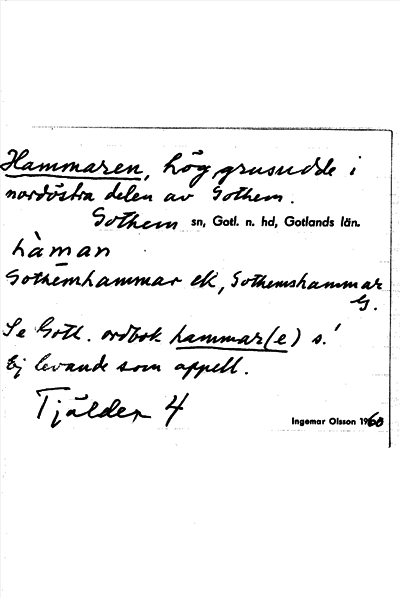 Hammaren, hög grusudde i
nordöstra delen av Gothem.
Gothem sn, Gotl. n. hd, Gotlands län.
hàman
Gothemhammar ek, Gothemshammar
G.
Se Gotl. ordbok hammar(e) s.!
Ej levande som appell.
Tjälder 4
Ingemar Olsson 1960